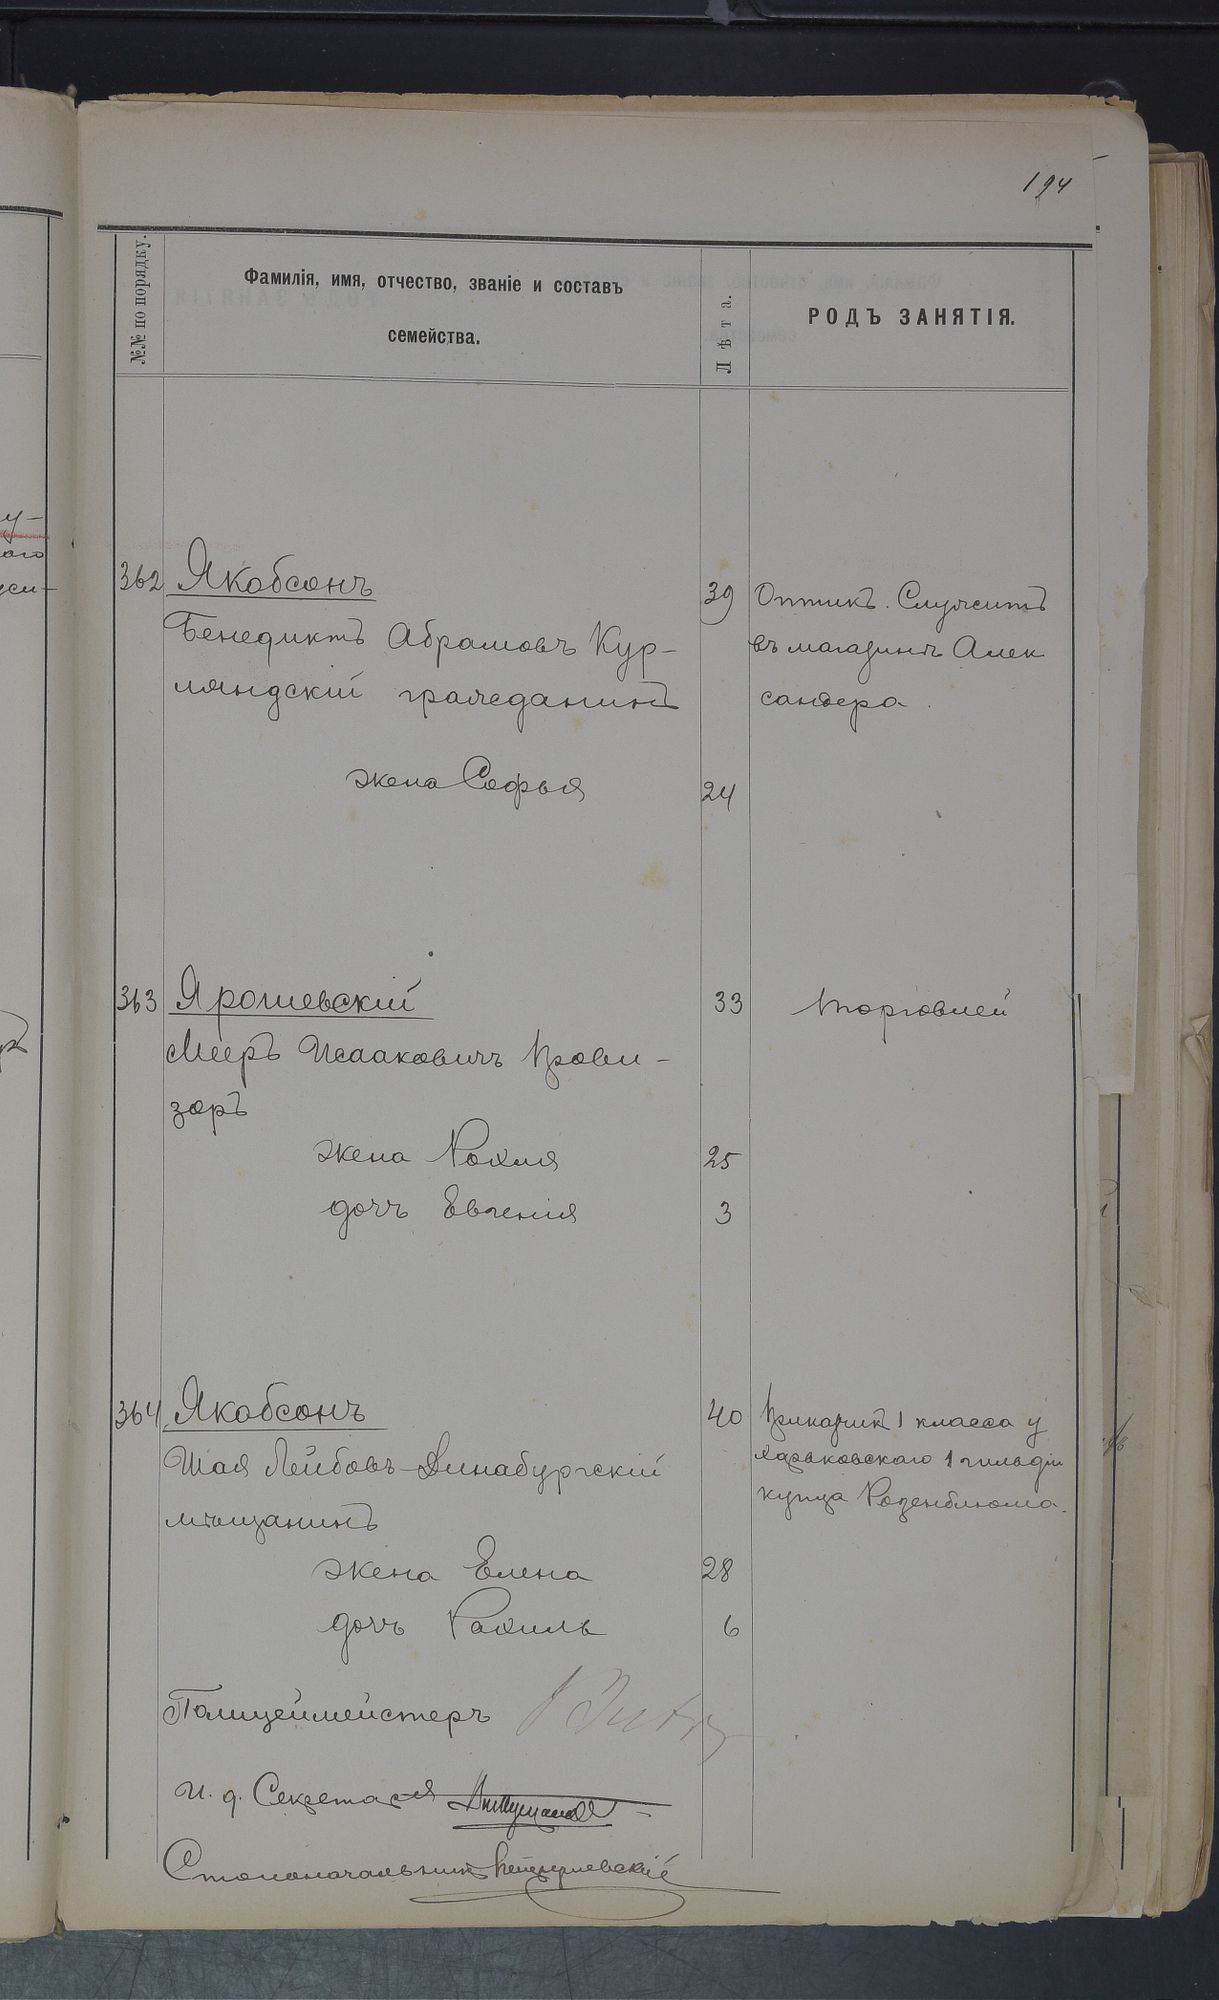 194
№№ по порядку.
Фамилія, имя, отчество, званіе и составъ
семейства.
Лѣта.
РОДЪ ЗАНЯТІЯ.
362 Якобсонъ 39 Оптикъ. Служитъ
Бенедиктъ Абрамовъ Кур- въ магазинѣ Алек
ляндскій гражданинъ сандера.
жена Софья 24
363 Ярошевскій 33 торговлей
Мееръ Исааковичъ прови-
зоръ
жена Рохля 25
дочъ Евгенія 3
364 Якобсонъ 40 Прикащикъ 1 класса у
Шая Лейбовъ-Динабургскій Харьковскаго 1 гильдіи
мѣщанинъ купца Розенблюма.
жена Елена 28
дочъ Рахиль 6
Полицеймейстеръ
И. д. Секретаря
Столоначальникъ